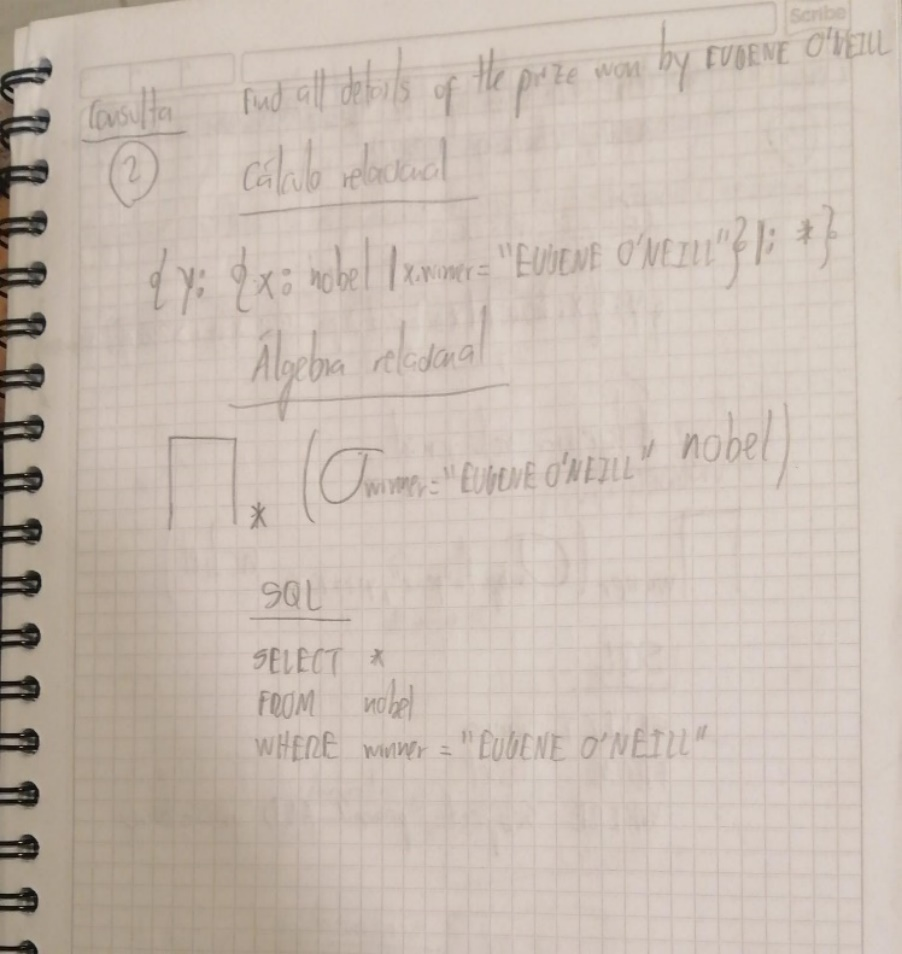 Scribe
Find all details of the prize won by EUGENE O'NEILL
Consulta
2
Cálculo relacional
{y: {x: nobel | x.winner = "EUGENE O'NEILL"} |: *}
Álgebra relacional
∏* (σ winner = "EUGENE O'NEILL" nobel)
SQL
SELECT *
FROM nobel
WHERE winner = "EUGENE O'NEILL"